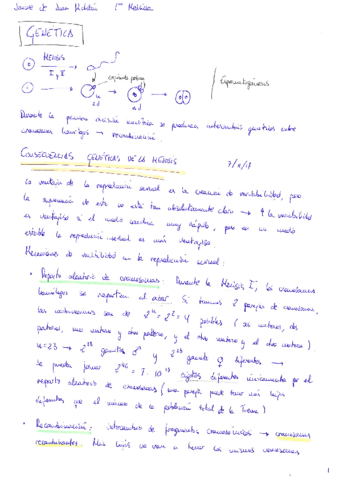 GENÉTICA
MEIOSIS
I, II
corpúsculo polar
Espermatogénesis
n
2d
Durante la primera división meiótica se producen intercambios genéticos entre
cromosomas homólogos → recombinación.
CONSECUENCIAS GENÉTICAS DE LA MEIOSIS
La ventaja de la reproducción sexual es la creación de variabilidad, pero
la supremacía de esta no está tan absolutamente clara → la variabilidad
es ventajosa si el medio cambia muy rápido, pero en un medio
estable la reproducción asexual es más ventajosa.
Mecanismos de variabilidad en la reproducción sexual:
• Reparto aleatorio de cromosomas: Durante la Meiosis I, los cromosomas
homólogos se reparten al azar. Si tenemos 2 parejas de cromosomas,
las combinaciones son de 2ⁿ = 2² = 4 posibles (dos maternos, dos
paternos, uno materno y otro paterno, y el otro paterno y el otro materno)
n=23 → 2²³ gametos ♂ y 2²³ gametos ♀ diferentes →
se pueden formar 2⁴⁶ = 7·10¹³ cigotos diferentes únicamente por el
reparto aleatorio de cromosomas (una pareja puede tener más hijos
diferentes que el número de la población total de la Tierra)
• Recombinación: intercambio de fragmentos cromosómicos → cromosomas
recombinantes. Mis hijos no van a tener los mismos cromosomas
1